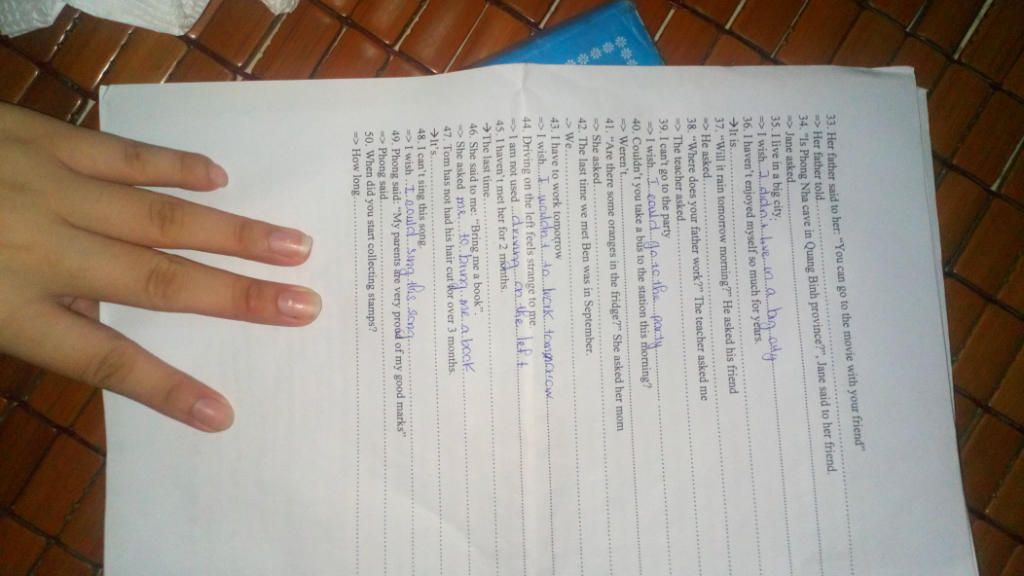 33. Her father said to her: "You can go to the movie with your friend"
=> Her father told..........
34. "Is Phong Nha cave in Quang Binh province?", Jane said to her friend.
=> Jane asked..........
35. I live in a big city.
=> I wish I didn't live in a big city
36. I haven't enjoyed myself so much for years.
→It is..........
37. "Will it rain tomorrow morning?" He asked his friend
=> He asked..........
38. "Where does your father work?" The teacher asked me
=> The teacher asked..........
39. I can't go to the party
=> I wish I could go to the party
40. Couldn't you take a bus to the station this morning?
=> Weren't..........
41. "Are there some oranges in the fridge?" She asked her mom
=> She asked..........
42. The last time we met Ben was in September.
-> We..........
43. I have to work tomorrow
=> I wish I wouldn't to work tomorrow
44. Driving on the left feels strange to me
=> I am not used driving on the left
45. I haven't met her for 2 months
→The last time..........
46. She said to me: "Bring me a book".
=> She asked me to bring me a book
47. Tom has not had his hair cut for over 3 months.
→It's..........
48. I can't sing this song
=> I wish I could sing this song
49. Phong said: "My parents are very proud of my good marks"
=> Phong said..........
50. When did you start collecting stamps?
=> How long..........